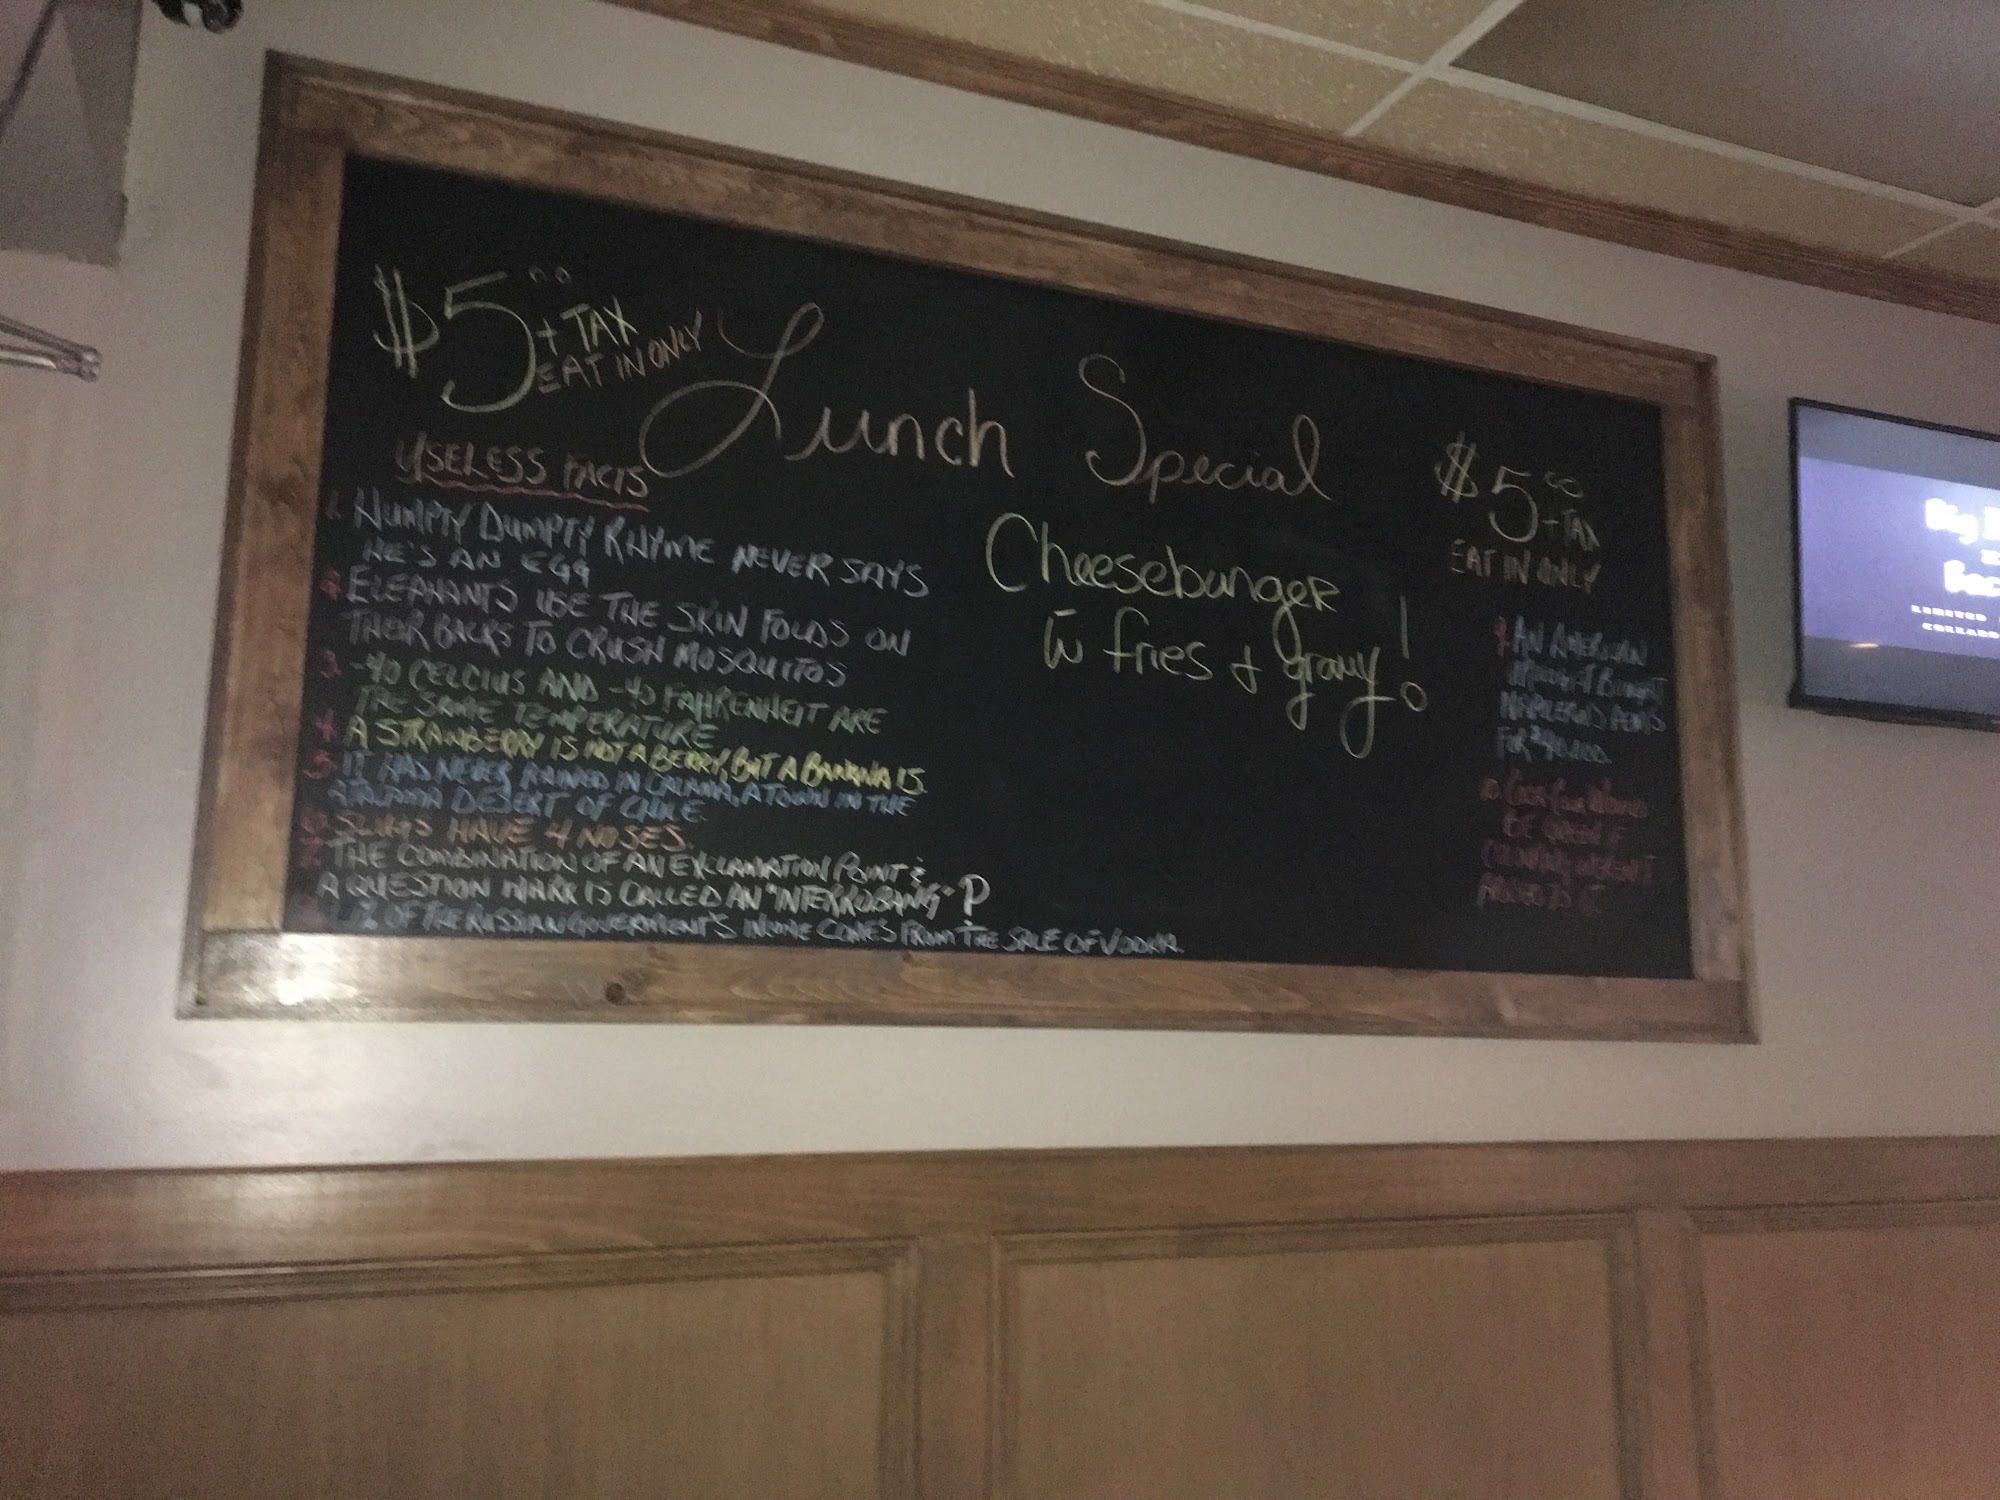 $5.00
+ TAX
EAT IN ONLY
Lunch Special
$5.00
+ TAX
EAT IN ONLY
Cheeseburger
w fries + gravy!
USELESS FACTS
1. HUMPTY DUMPTY RHYME NEVER SAYS
HE'S AN EGG
2. ELEPHANTS USE THE SKIN FOLDS ON
THEIR BACKS TO CRUSH MOSQUITOS
3. -40 CELCIUS AND -40 FAHRENHEIT ARE
THE SAME TEMPERATURE
4. A STRAWBERRY IS NOT A BERRY, BUT A BANANA IS.
5. IT HAS NEVER RAINED IN CALAMA, A TOWN IN THE
ATACAMA DESERT OF CHILE.
6. SLUGS HAVE 4 NOSES.
7. THE COMBINATION OF AN EXCLAMATION POINT &
A QUESTION MARK IS CALLED AN "INTERROBANG"
% OF THE RUSSIAN GOVERMENT'S INCOME COMES FROM THE SALE OF VODKA.
9. AN AMERICAN
BOUGHT
NAPLEON'S PENIS
FOR $40,000.
10. COCA COLA WOULD
BE GREEN IF
COLOURING WASENT
ADDED TO IT
LIMITED